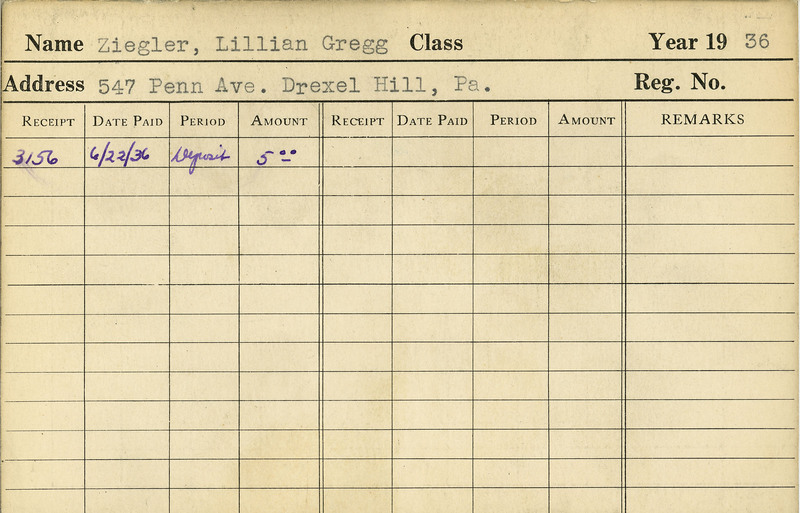 Name Ziegler, Lillian Gregg Class Year 19 36
Address 547 Penn Ave. Drexel Hill, Pa. Reg. No.
RECEIPT DATE PAID PERIOD AMOUNT RECEIPT DATE PAID PERIOD AMOUNT REMARKS
3156 6/22/36 Deposit 5 00